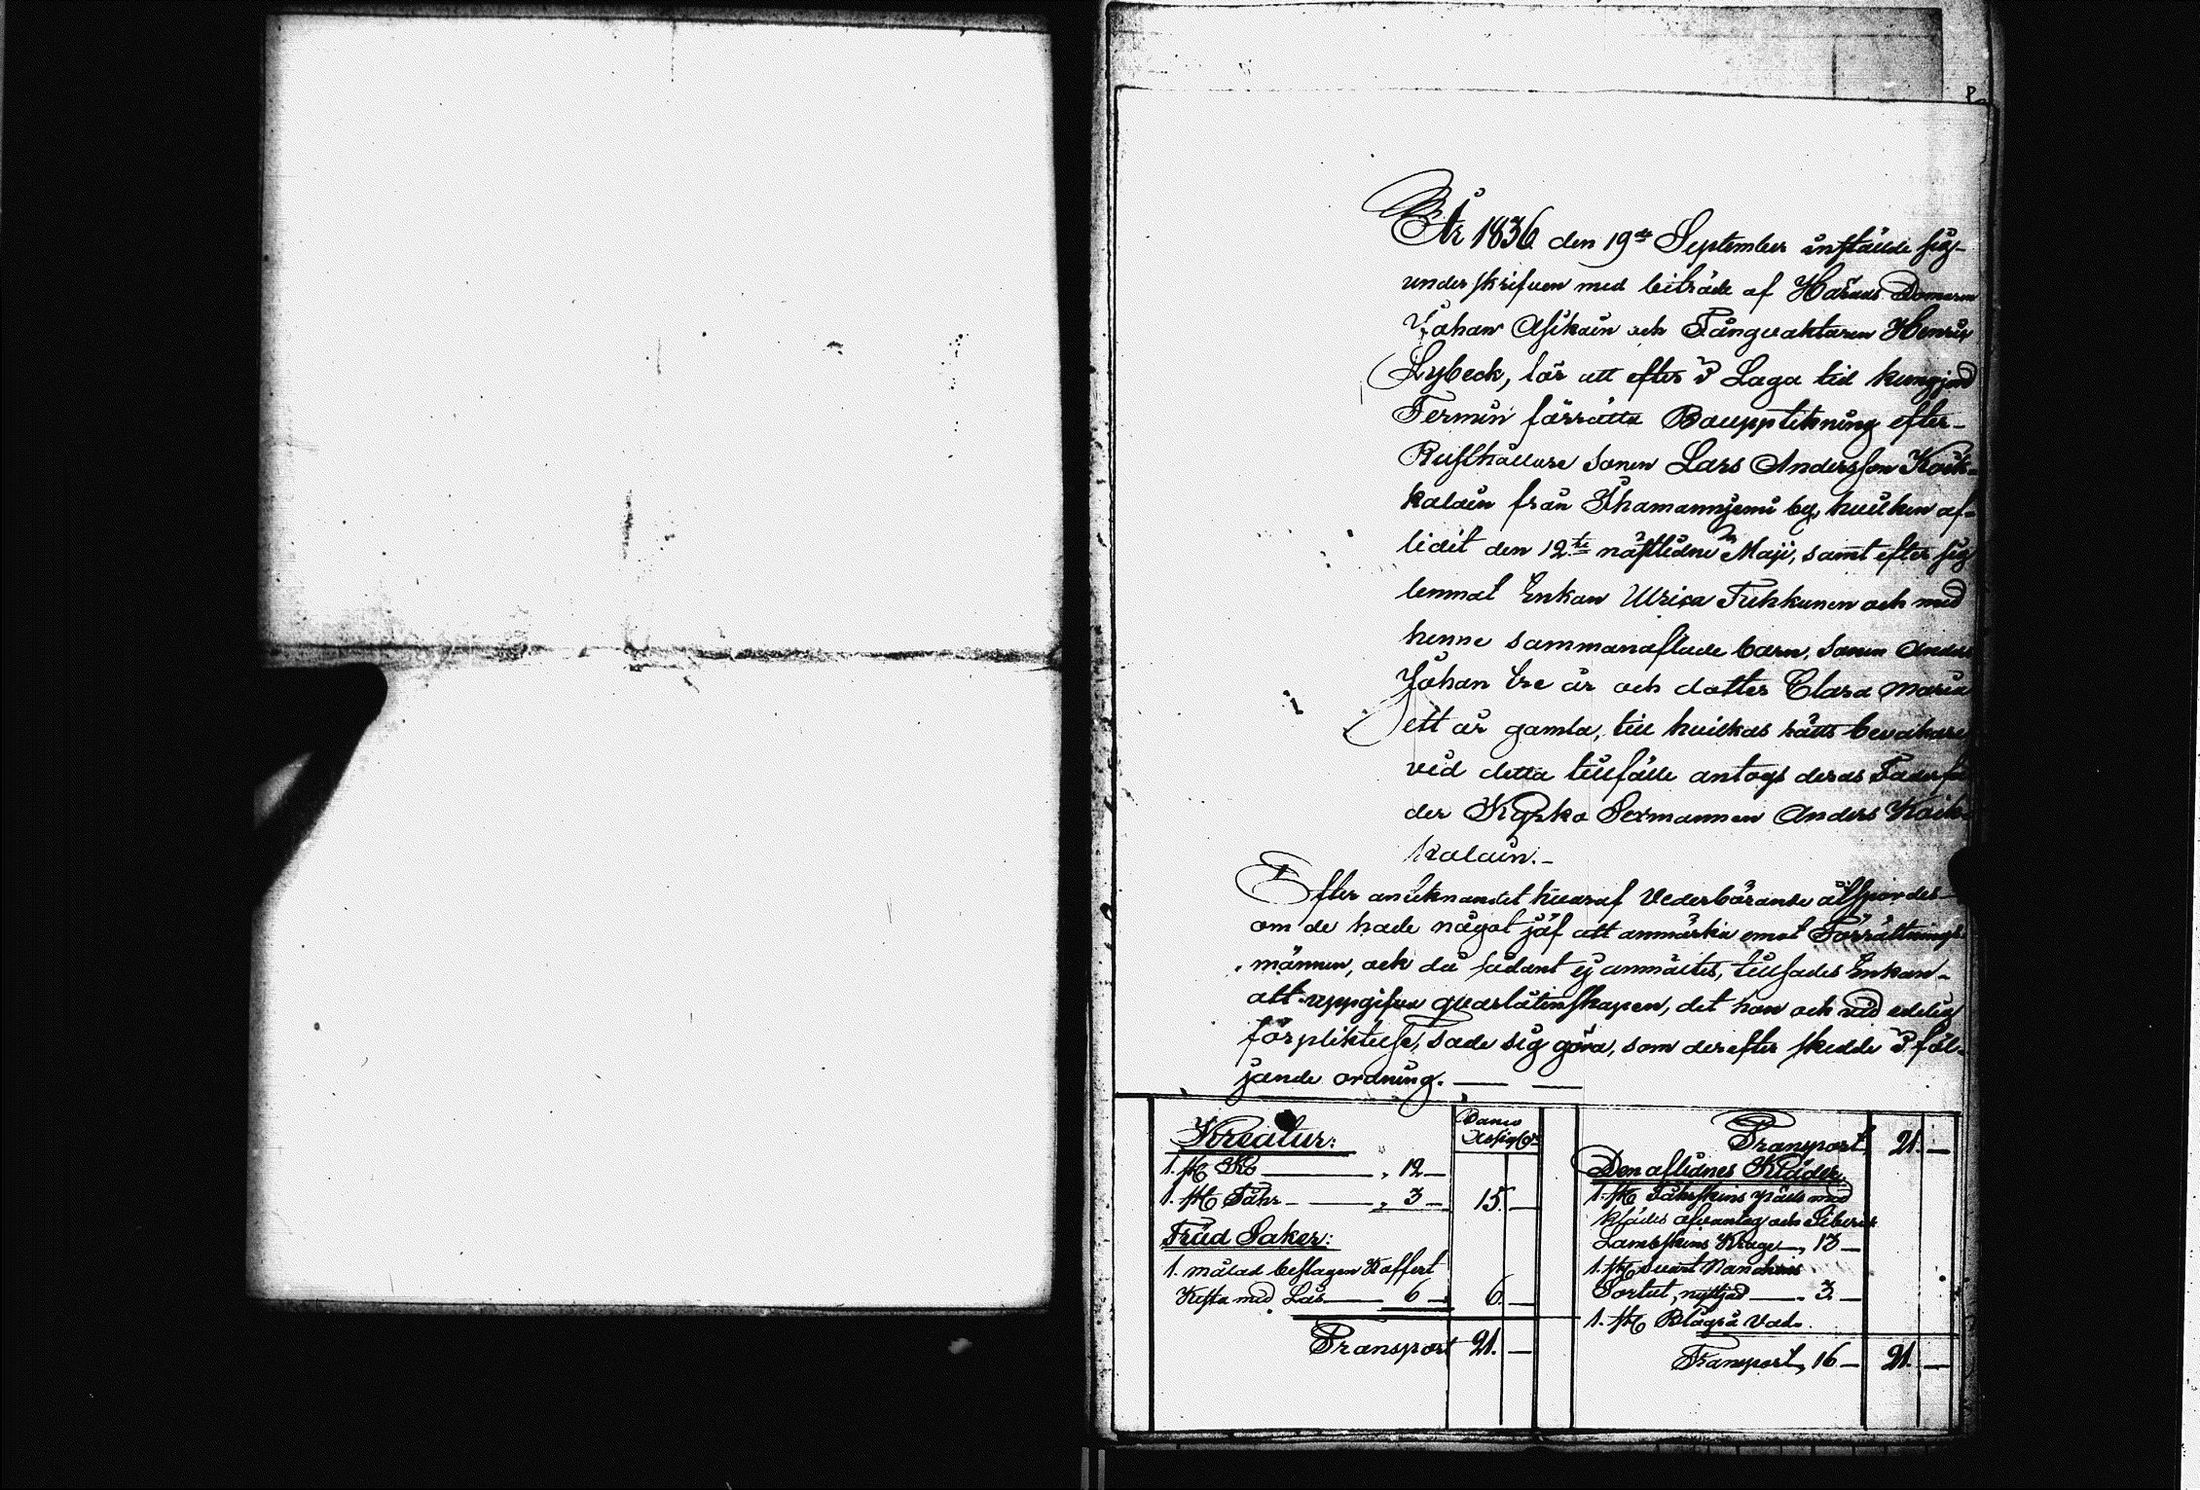 År 1836 den 19de September instälde sig
underskrifven med biträde af Härads Domaren
Johan Asikain och Fångvaktaren Henric
Lybeck, för att efter i Laga tid kungjord
Termin förrätta Boupptekning efter
Rusthållare Sonen Lars Andersson Koik-
kalain från Thamanniemi by, hvilken af-
lidit den 12te nästlidne Maji, samt efter sig
lemnat Enkan Ulrica Tuhkunen och med
henne sammanaflade barn, Sonen Anders
Johan tre år och dotter Clara Maria
ett år gamla, till hvilkas rätts bevakare
vid detta tillfälle antogs deras Faderfa-
der Kyrko Sexmannen Anders Koik-
kalain.
Efter anteknandet hvaraf Vederbörande åtspordes
om de hade något jäf att anmärka emot Förrättnings
männen, och då sådant ej anmältes, tillsades Enkan
att uppgifva qvarlåtenskapen, det hon och vid edelig
förpliktelse, sade sig göra, som derefter skedde i föl-
jande ordning.
Kreatur: Banco Assig Rr
1. st Ko 12 —
1. st Fåhr 3 — 15. —
Träd Saker:
1. målad beslagen Koffert
Kista med Lås 6 — 6. —
Transport 21. —
Transport 21. —
Den aflidnes Kläder.
1. st Fåhrskins päls med
klädes öfvantyg och Siberisk
Lambskins Krage 13 —
1. st svart Nankins
Sortut, nyttjad 3. —
1. st Blågrå Vad-
Transport, 16 — 21. —